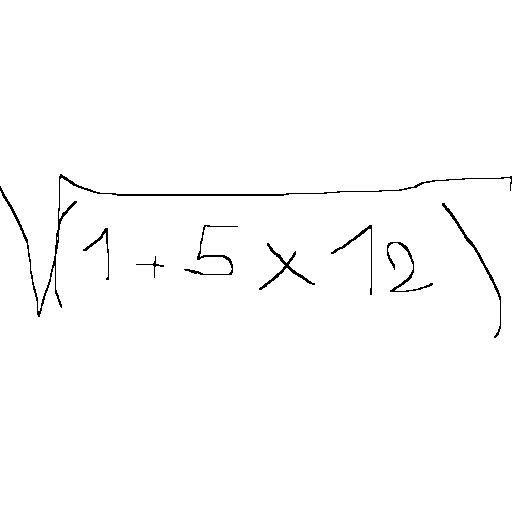 √(1+5×12)